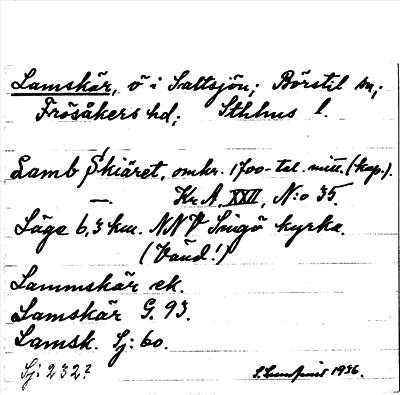 Lamskär, ö i Saltsjön; Börstil sn;
Frösåkers hd; Sthlms l.
Lamb Skiäret, omkr. 1700-tal. mitt. (kop).
— Kr. A. XXII, N:o 35.
Läge 6,3 km. NNV Singö kyrka.
(Vänd!)
Lammskär ek.
Lamskär G. 93.
Lamsk. Sj: 60.
Sj: 232?
1936.